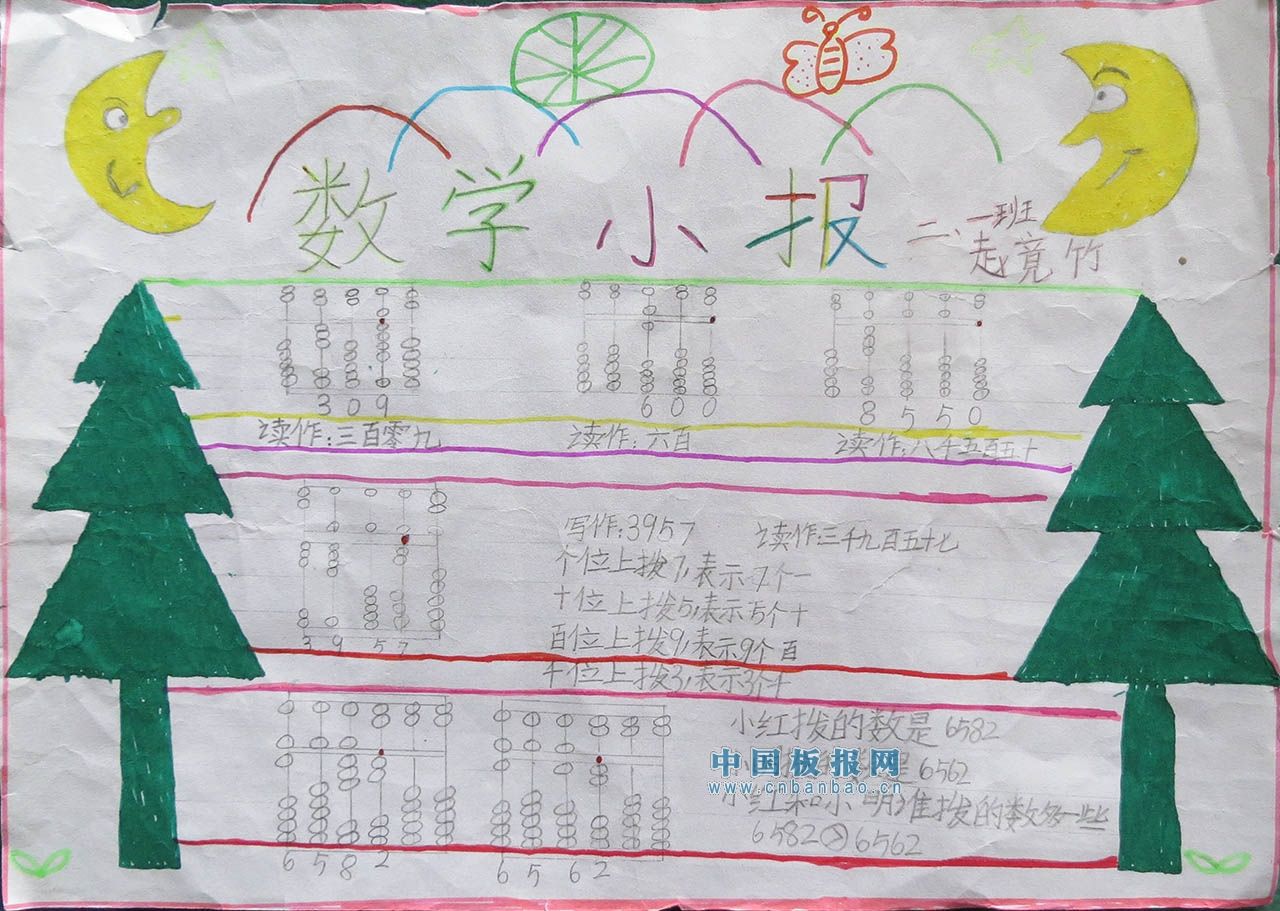 数学小报
二、一班
赵竟竹
309
600
8550
读作:三百零九
读作:六百
读作:八千五百五十
3957
写作:3957
读作三千九百五十七
个位上拨7,表示7个一
十位上拨5,表示5个十
百位上拨9,表示9个百
千位上拨3,表示3个千
6582
6562
小红拨的数是6582
是6562
小红和小明谁拨的数多一些
6582>6562
中国板报网
www.cnbanbao.cn